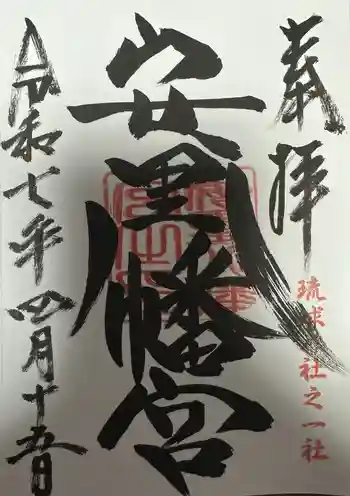 奉拝
琉球八社之一社
安里八幡宮
令和七年四月十五日